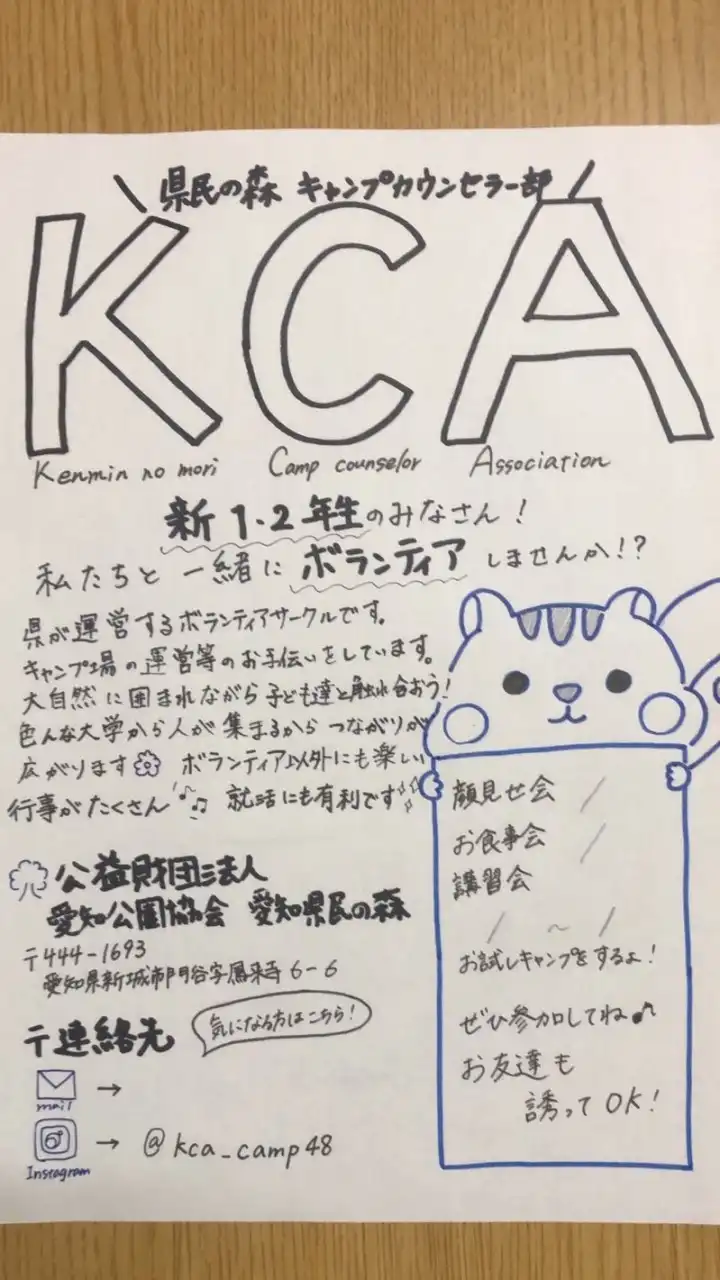 県民の森 キャンプカウンセラー部
KCA
Kenmin no mori Camp counselor Association
新1・2年生のみなさん！
私たちと一緒にボランティアしませんか!?
県が運営するボランティアサークルです。
キャンプ場の運営等のお手伝いをしています。
大自然に囲まれながら子ども達と触れ合おう！
色んな大学から人が集まるからつながりが
広がります ボランティア以外にも楽しい
行事がたくさん♪♫ 就活にも有利です
顔見せ会 /
お食事会 /
講習会
/ ～ /
お試しキャンプをするよ！
ぜひ参加してね♪
お友達も
誘ってOK！
公益財団法人
愛知公園協会 愛知県民の森
〒444-1693
愛知県新城市門谷字鳳来寺6-6
〒連絡先
気になる方はこちら！
mail →
Instagram → @kca_camp48